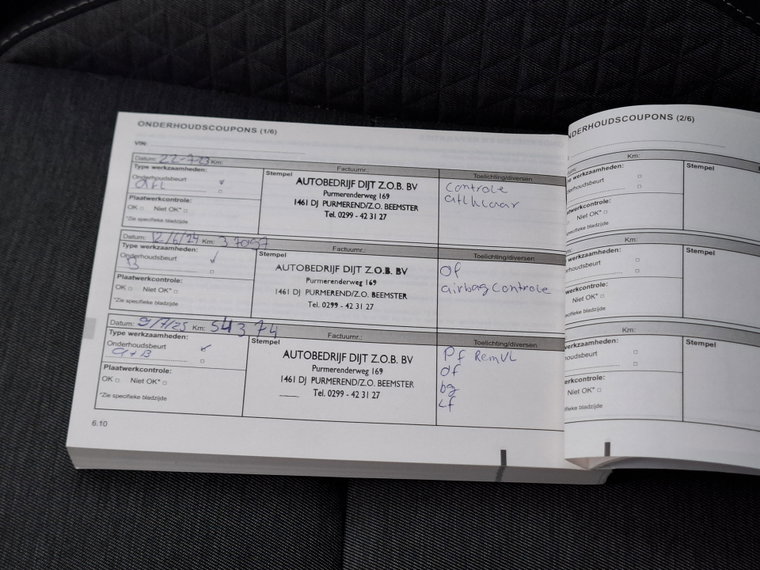 ONDERHOUDSCOUPONS (1/6)
VIN:
Datum: 22-7-23 Km:
Factuurnr.:
Toelichting/diversen
Type werkzaamheden:
Onderhoudsbeurt
Plaatwerkcontrole:
OK □ Niet OK* □
*Zie specifieke bladzijde
Stempel
AUTOBEDRIJF DIJT Z.O.B. BV
Purmerenderweg 169
1461 DJ PURMEREND/Z.O. BEEMSTER
Tel. 0299 - 42 31 27
Controle
Datum: 12/6/24 Km:
Factuurnr.:
Toelichting/diversen
Type werkzaamheden:
Onderhoudsbeurt
B
Plaatwerkcontrole:
OK □ Niet OK* □
*Zie specifieke bladzijde
Stempel
AUTOBEDRIJF DIJT Z.O.B. BV
Purmerenderweg 169
1461 DJ PURMEREND/Z.O. BEEMSTER
Tel. 0299 - 42 31 27
of
airbag Controle
Datum: 9/7/25 Km: 54374
Factuurnr.:
Toelichting/diversen
Type werkzaamheden:
Onderhoudsbeurt
a+B
Plaatwerkcontrole:
OK □ Niet OK* □
*Zie specifieke bladzijde
Stempel
AUTOBEDRIJF DIJT Z.O.B. BV
Purmerenderweg 169
1461 DJ PURMEREND/Z.O. BEEMSTER
Tel. 0299 - 42 31 27
Pf RemVL
of
bg
Lf
6.10
NDERHOUDSCOUPONS (2/6)
Km:
pe werkzaamheden:
nderhoudsbeurt
aatwerkcontrole:
Niet OK* □
specifieke bladzijde
Stempel
Km:
werkzaamheden:
rhoudsbeurt
werkcontrole:
Niet OK* □
ecifieke bladzijde
Stempel
Km:
erkzaamheden:
oudsbeurt
erkcontrole:
Niet OK* □
ifieke bladzijde
Stempel